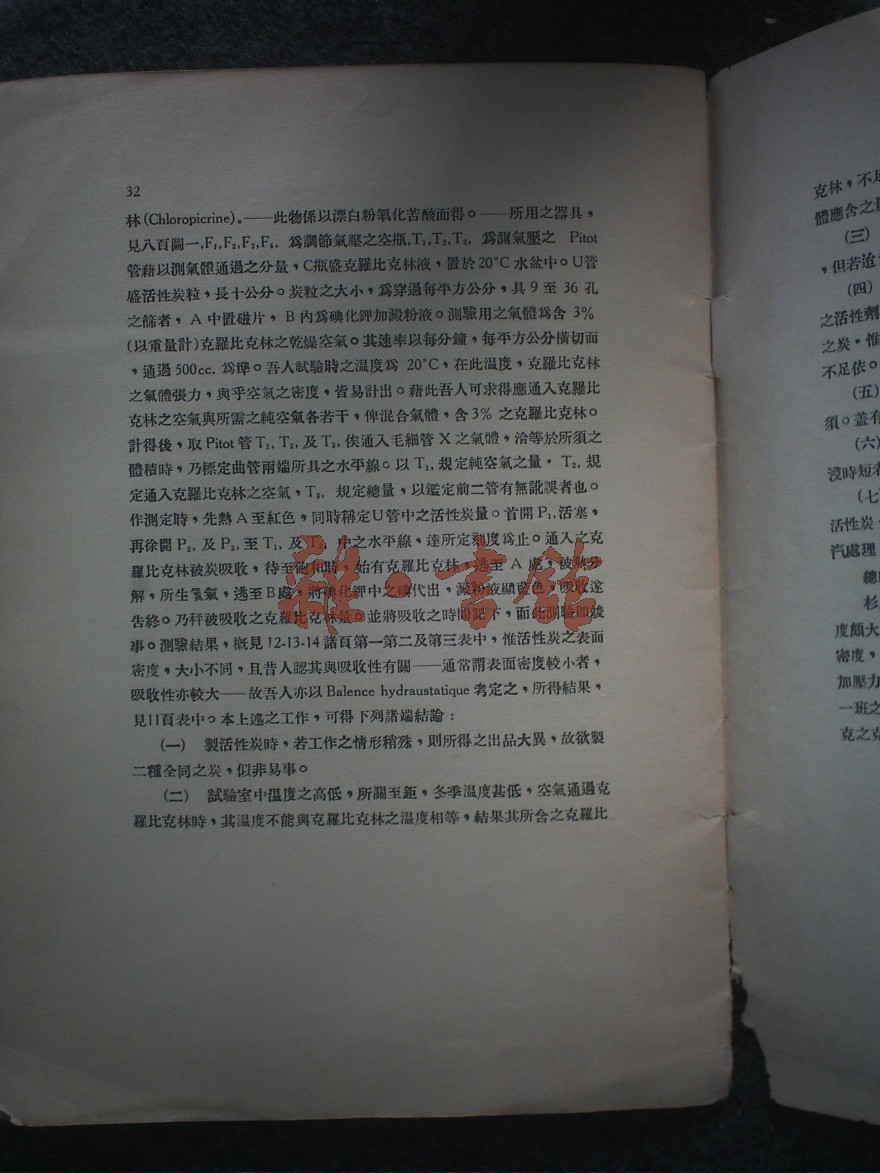 32
林(Chloropicrine)。——此物係以漂白粉氧化苦酸而得。——所用之器具，
見八百圖一,F₁,F₂,F₃,F₄, 爲調節氣壓之空瓶,T₁,T₂,T₃, 爲測氣壓之 Pitot
管藉以測氣體通過之分量，C瓶盛克羅比克林液，置於20°C水盆中。U管
盛活性炭粒，長十公分。炭粒之大小，爲穿過每平方公分，具 9 至 36 孔
之篩者， A 中置磁片， B 內爲碘化鉀加澱粉液。測驗用之氣體爲含 3%
(以重量計)克羅比克林之乾燥空氣。其速率以每分鐘，每平方公分橫切面
，通過500cc. 爲準。吾人試驗時之温度爲 20°C，在此温度，克羅比克林
之氣體張力，與乎空氣之密度，皆易計出。藉此吾人可求得應通入克羅比
克林之空氣與所需之純空氣各若干，俾混合氣體，含3% 之克羅比克林。
計得後，取 Pitot 管 T₁, T₂, 及 T₃, 俟通入毛細管 X 之氣體，洽等於所須之
體積時，乃標定曲管兩端所具之水平線。以 T₁, 規定純空氣之量， T₂, 規
定通入克羅比克林之空氣，T₃, 規定總量，以鑑定前二管有無訛誤者也。
作測定時，先熱 A 至紅色，同時稱定U管中之活性炭量。首開 P₁,活塞，
再徐開 P₂, 及 P₃, 至 T₁, 及 T₃, 中之水平線，達所定刻度爲止。通入之克
羅比克林被炭吸收，待至飽和時，始有克羅比克林，逃至 A 處，被熱分
解，所生氯氣，逃至B處，將碘化鉀中之碘代出，澱粉液顯藍色，吸收遂
告終。乃秤被吸收之克羅比克林量。並將吸收之時間記下，而此測驗即竣
事。測驗結果，槪見 12-13-14 諸頁第一第二及第三表中，惟活性炭之表面
密度，大小不同，且昔人認其與吸收性有關——通常謂表面密度較小者，
吸收性亦較大——故吾人亦以 Balence hydraustatique 考定之，所得結果，
見11頁表中。本上述之工作，可得下列諸端結論：
(一) 製活性炭時，若工作之情形稍殊，則所得之出品大異，故欲製
二種全同之炭，似非易事。
(二) 試驗室中温度之高低，所關至鉅，冬季温度甚低，空氣通過克
羅比克林時，其温度不能與克羅比克林之温度相等，結果其所含之克羅比
雜·書館
克林，不足
體應含之量
(三)
，但若迨
(四)
之活性劑
之炭。惟
不足依。
(五)
須。蓋有
(六)
浸時短者
(七)
活性炭，
汽處理
總
杉
度頗大
密度，
加壓力
一班之
克之克